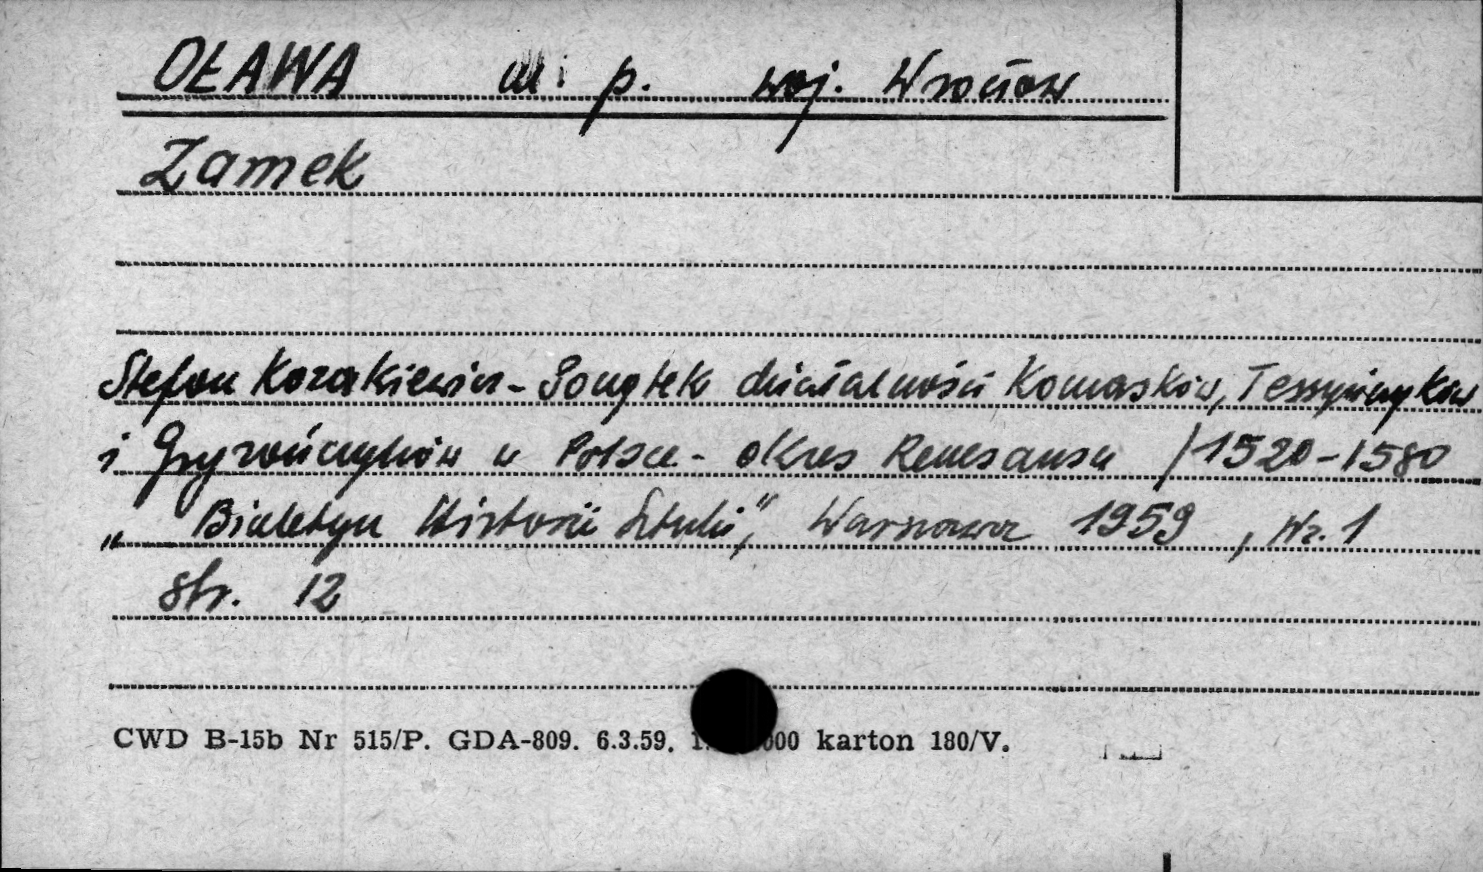 OŁAWA m. p. woj. Wrocław
Zamek
Stefan Kozakiewicz - Początek działalności Komasków, Tessyńczyków
i Gryzończyków w Polsce - okres Renesansu /1520-1580
„Biuletyn Historii Sztuki", Warszawa 1959, Nr. 1
str. 12
CWD B-15b Nr 515/P. GDA-809. 6.3.59. 000 karton 180/V.